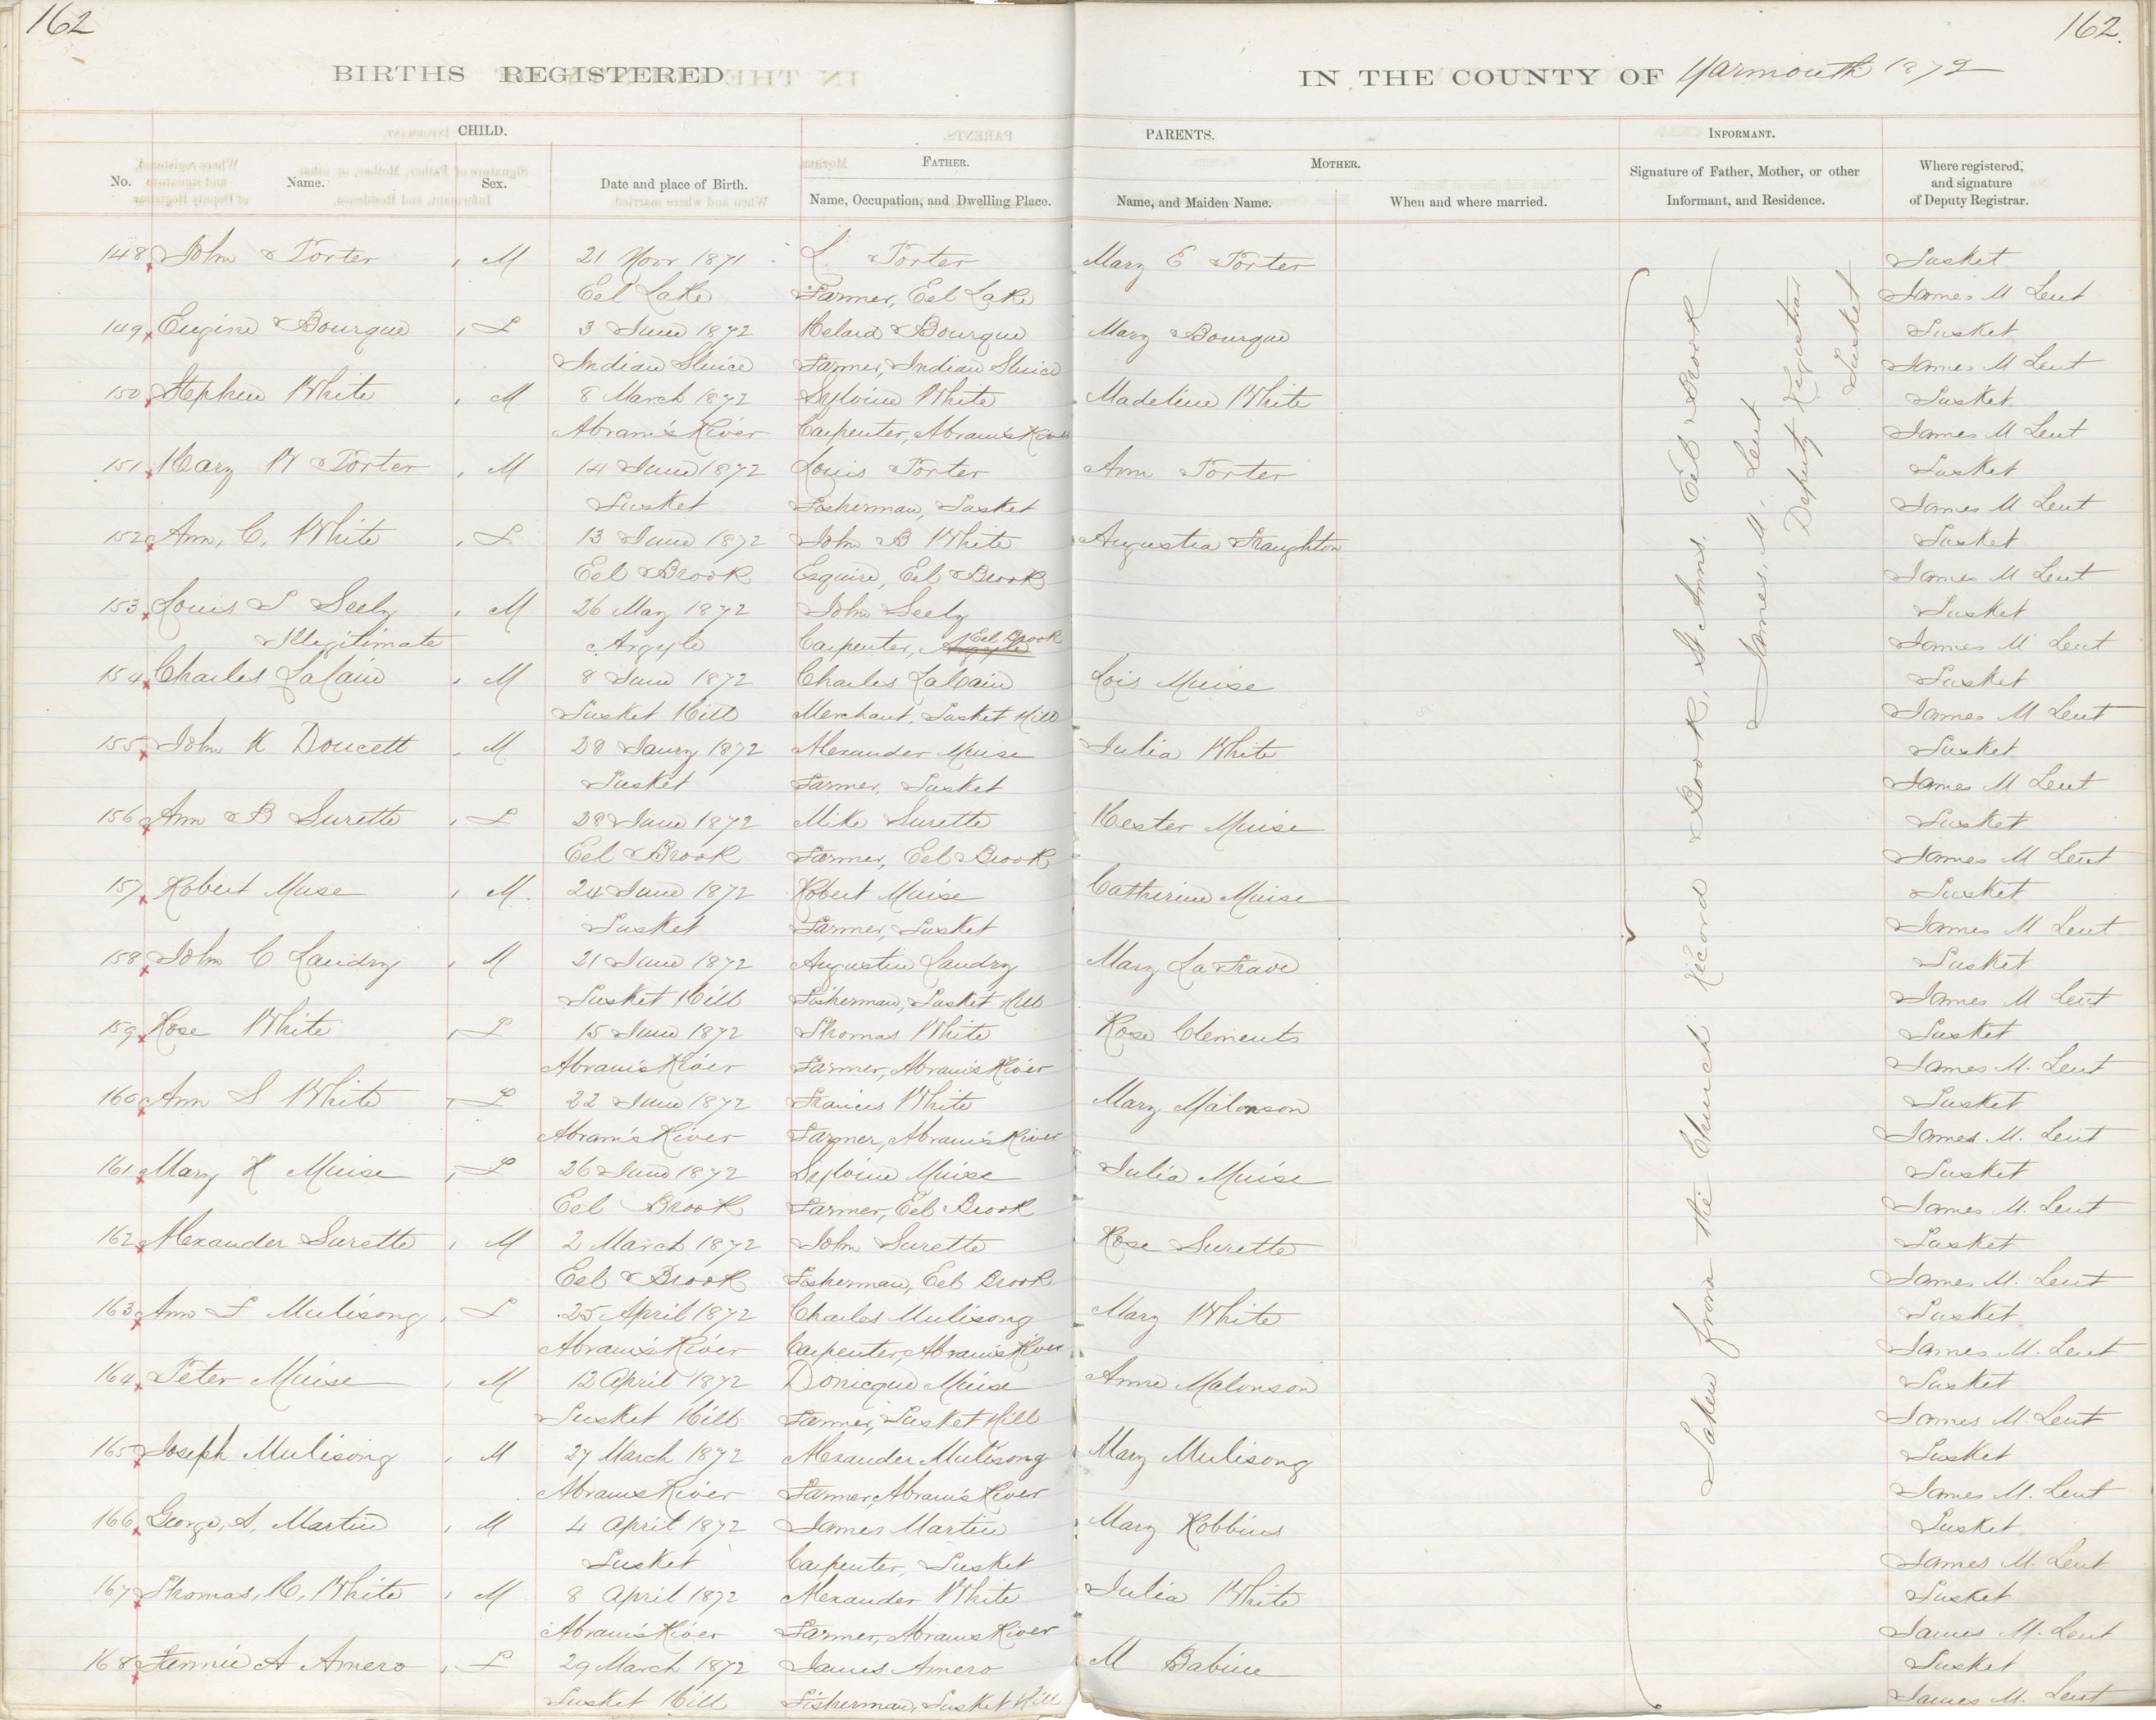 162
162.
BIRTHS REGISTERED
IN THE COUNTY OF Yarmouth 1872
CHILD.
PARENTS.
INFORMANT.
FATHER.
MOTHER.
No. Name. Sex. Date and place of Birth. Name, Occupation, and Dwelling Place. Name, and Maiden Name. When and where married. Signature of Father, Mother, or other Informant, and Residence. Where registered, and signature of Deputy Registrar.
148 John Porter M 21 Novr 1871 L. Porter Mary E Porter Tusket
Eel Lake Farmer, Eel Lake James M Lent
149 Eugine Bourque F 3 June 1872 Helard Bourque Mary Bourque Tusket
Indian Sluice Farmer, Indian Sluice James M Lent
150 Stephen White M 8 March 1872 Sylvine White Madeline White Tusket
Abram's River Carpenter, Abram's River James M Lent
151 Mary W Porter M 14 June 1872 Louis Porter Ann Porter Tusket
Tusket Fisherman, Tusket James M Lent
152 Ann, C, White F 13 June 1872 John B White Augustia Traughton Tusket
Eel Brook Esquire, Eel Brook James M Lent
153 Louis S Seely M 26 May 1872 John Seely Tusket
Illegitimate Argyle Carpenter, Argyle Eel Brook James M Lent
154 Charles LaCain M 8 June 1872 Charles LaCain Lois Muise Tusket
Tusket Hill Merchant, Tusket Hill James M Lent
155 John K Doucett M 28 Jaury 1872 Alexander Muise Julia White Tusket
Tusket Farmer, Tusket James M Lent
156 Ann B Surette F 28 June 1872 Mike Surette Hester Muise Tusket
Eel Brook Farmer, Eel Brook James M Lent
157 Robert Muse M 24 June 1872 Robert Muise Catherine Muise Tusket
Tusket Farmer, Tusket James M Lent
158 John C Landry M 21 June 1872 Augustin Landry Mary LaTrave Tusket
Tusket Hill Fisherman, Tusket Hill James M Lent
159 Rose White F 15 June 1872 Thomas White Rose Clements Tusket
Abram's River Farmer, Abram's River James M. Lent
160 Ann S White F 22 June 1872 Francis White Mary Malonson Tusket
Abram's River Farmer, Abram's River James M. Lent
161 Mary K Muise F 26 June 1872 Sylvine Muise Julia Muise Tusket
Eel Brook Farmer, Eel Brook James M. Lent
162 Alexander Surette M 2 March 1872 John Surette Rose Surette Tusket
Eel Brook Fisherman, Eel Brook James M. Lent
163 Ann F Mulisong F 25 April 1872 Charles Mulisong Mary White Tusket
Abram's River Carpenter, Abram's River James M. Lent
164 Peter Muise M 12 April 1872 Donicque Muise Anne Malonson Tusket
Tusket Hill Farmer, Tusket Hill James M. Lent
165 Joseph Mulisong M 27 March 1872 Alexander Mulisong Mary Mulisong Tusket
Abram's River Farmer, Abram's River James M. Lent
166 George, A, Martin M 4 April 1872 James Martin Mary Robbins Tusket
Tusket Carpenter, Tusket James M. Lent
167 Thomas, H, White M 8 April 1872 Alexander White Julia White Tusket
Abram's River Farmer, Abrams River James M. Lent
168 Fannie A Amero F 29 March 1872 James Amero M Babine Tusket
Tusket Hill Fisherman, Tusket Hill James M. Lent
Taken from the Church Record Book, St Anns, Eel Brook
James, M, Lent
Deputy Registrar
Tusket